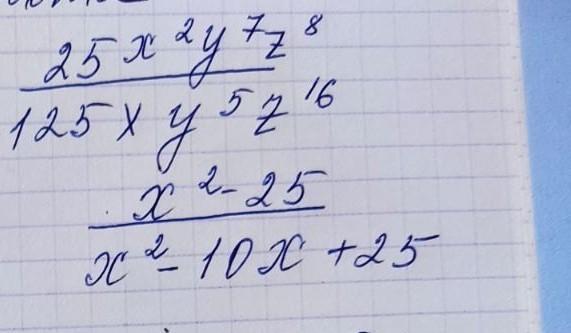 25x²y⁷z⁸
125xy⁵z¹⁶
x²-25
x²-10x+25